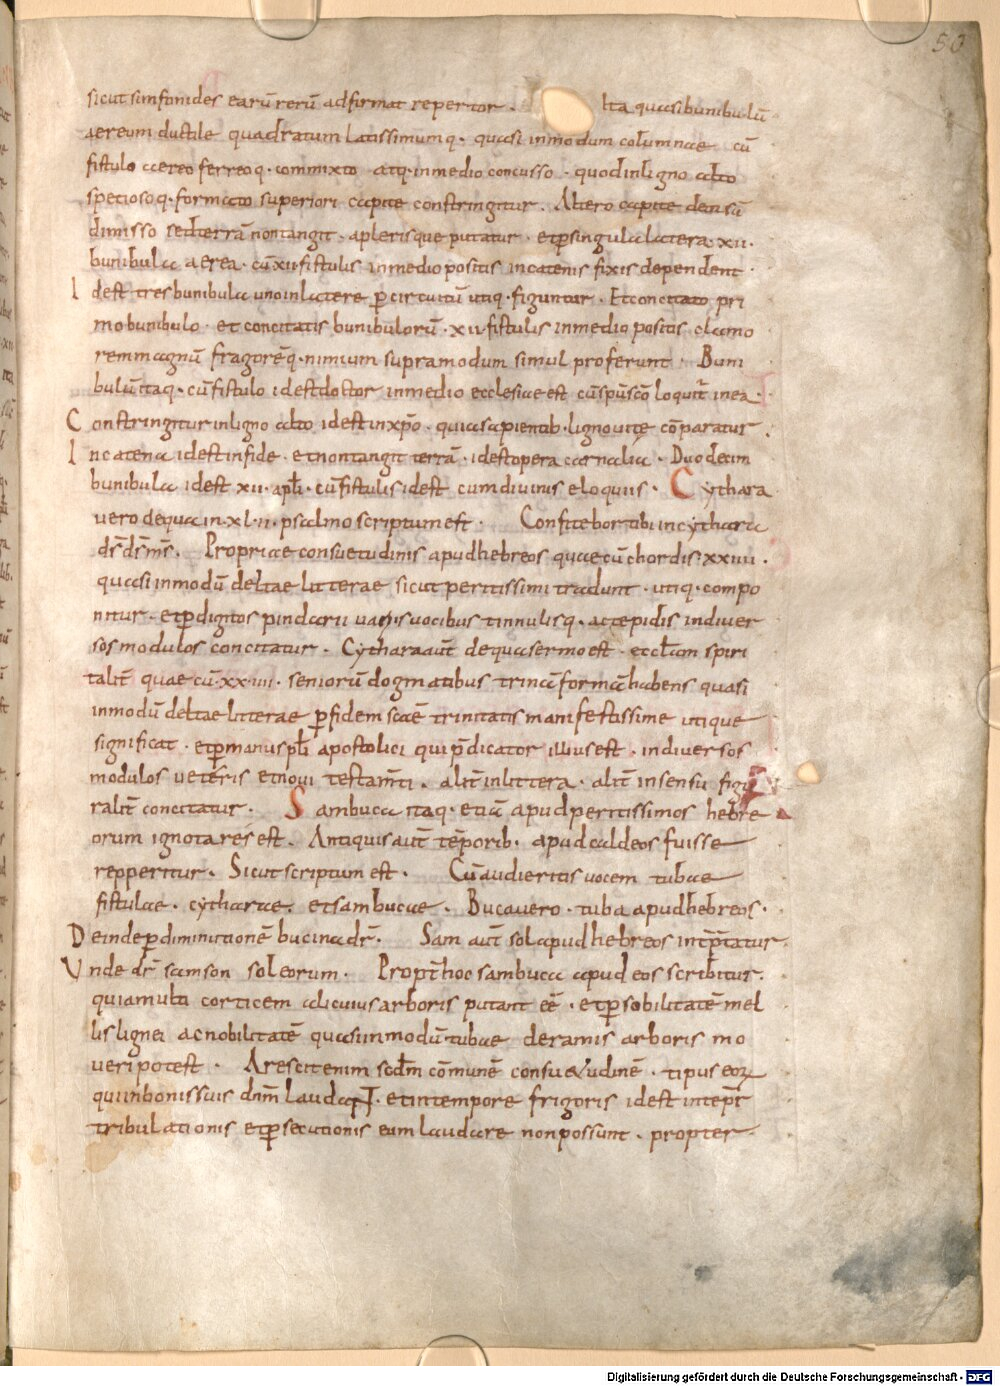 50
sicut simfonides earū rerū adfirmat repertor . lta quasi bunibulū
aereum ductile quadratum latissimumq· quasi inmodum columnae cū
fistulo aereo ferreoq· commixto atq· inmedio concusso · quod inligno alto
speciosoq· formato superiori capite constringitur . Altero capite deorsū
dimisso sed terrā non tangit · aplerisque putatur · et p singula latera · xii ·
bunibula aerea · cū xii fistulis inmedio positis incatenis fixis dependent ·
Idest tres bunibula uno inlatere p circuitū utiq· figuntur . Et concitato pri
mo bunibulo · et concitatis bunibulorū · xii fistulis inmedio positis clamo
rem magnū fragorēq· nimium supramodum simul proferunt · Buni
bulū itaq· cū fistulo idest doctor inmedio ecclesiae est cū spū scō loquit̄ inea ·
Constringitur inligno alto idest in xp̄o · quia sapientib· ligno uitę cōparatur .
In catena idest infide · et non tangit terrā · idest opera carnalia · Duodecim
bunibula idest xii · apl̄i · cū fistulis idest cum diuinis eloquiis · Cythara
uero de qua in · xl · ii · psalmo scriptum est · Confitebor tibi in cythara
ds̄ ds̄ ms̄ . Propriae consuetudinis apud hebreos quae cū chordis · xxiiii ·
quasi inmodū deltae litterae sicut peritissimi tradunt · utiq· compo
nitur · et p digitos pindarii uariis uocibus tinnulisq· actepidis indiuer
sos modulos concitatur . Cythara aut̄ de qua sermo est · eccl̄am spiri
talit̄ quae cū · xx · iiii · seniorū dogmatibus trinā formā habens quasi
inmodū deltae litterae p fidem scāe trinitatis manifestissime utique
significat · et p manus pl̄i apostolici qui p̄dicator illius est · indiuersos
modulos uetēris et noui testam̄ti . alit̄ inlittera · alit̄ insensu figu
ralit̄ concitatur · Sambuca itaq· etiā apud peritissimos hebre
orum ignota res est . Antiquis aut̄ tēporib· apud caldeos fuisse
repperitur . Sicut scriptum est · Cū audieritis uocem tubae
fistulae · cytharae · et sambucae . Buca uero · tuba apud hebreos ·
Deinde p diminitionē bucina dr̄ . Sam aut̄ sol apud hebreos int̄p̄tatur .
Unde dr̄ samson sol eorum . Propt̄ hoc sambuca apud eos scribitur .
quia multi corticem alicuius arboris putant eē · et p sobilitatē mel
lis lignei ac nobilitatē quasi inmodū tubae de ramis arboris mo
ueri potest . Arescit enim scdm̄ cōmunē consuetudinē · tipus eorꝝ
qui inbonis suis dnm̄ laudant · et in tempore frigoris idest intep̄r
tribulationis et p secutionis eum laudare non possunt · propter
Digitalisierung gefördert durch die Deutsche Forschungsgemeinschaft - DFG